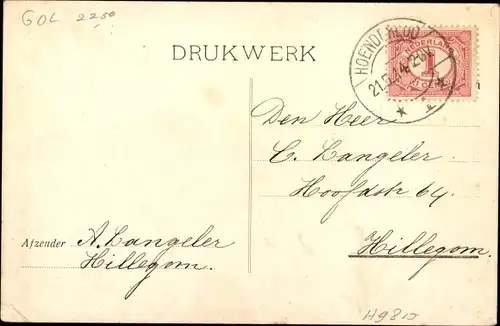 GOL 2250
DRUKWERK
HOENDERLOO
21.5.14
NEDERLAND
1
CENT
Den Heer
C. Langeler
Hoofdstr 64.
Hillegom.
Afzender A. Langeler
Hillegom.